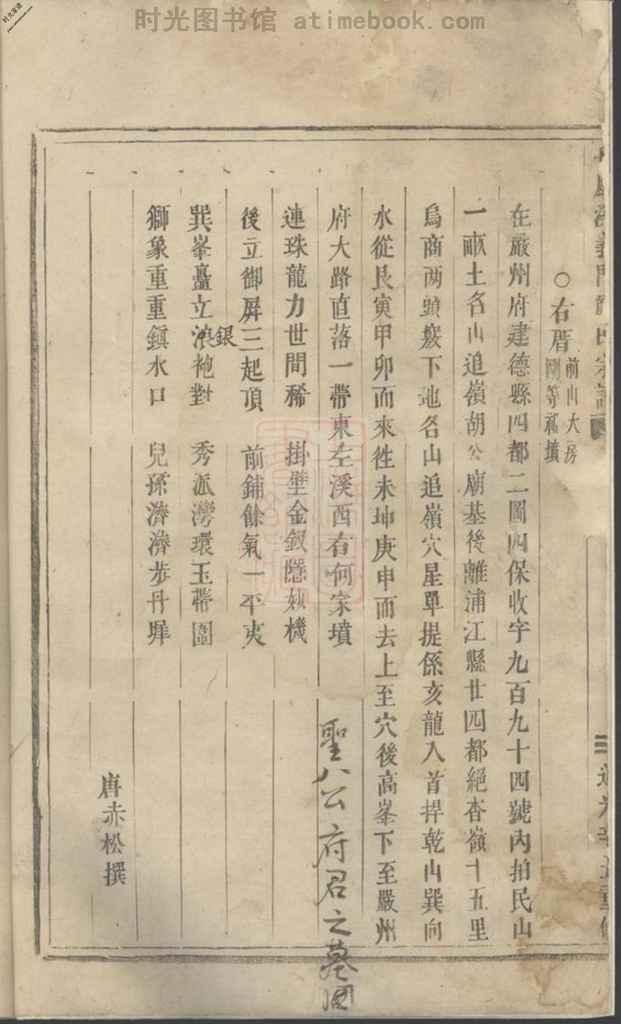 时光图书馆 atimebook.com
○右厝 前山大房
等福墳
在嚴州府建德縣四都二圖四保收字九百九十四號內拍民山
一畝土名山追嶺胡公廟基後離浦江縣廿四都絕杳嶺十五里
烏商兩頭發下地名山追嶺穴星單提係亥龍入首捍乾山巽向
水從艮寅甲卯而來徃未坤庚申而去上至穴後高峯下至嚴州
府大路直落一帶東左溪西右何家墳
聖八公府君之墓圖
連珠龍力世間稀 掛壁金釵隱妙機
後立御屏三起頂 前鋪餘氣一平夷
巽峯矗立浪袍對 秀派灣環玉帶圍
銀
獅象重重鎮水口 兒孫濟濟步丹墀
唐赤松撰